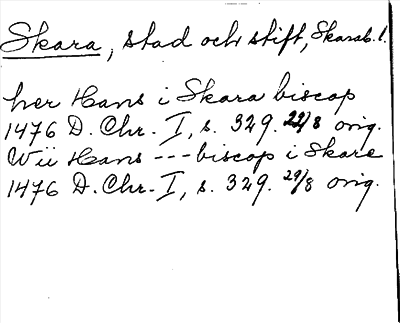 Skara, stad och stift, Skarab. l.
her Hans i Skara biscop
1476 D. Chr. I, s. 329. 22/8 orig.
Wii Hans --- biscop i Skare
1476 D. Chr. I, s. 329. 29/8 orig.